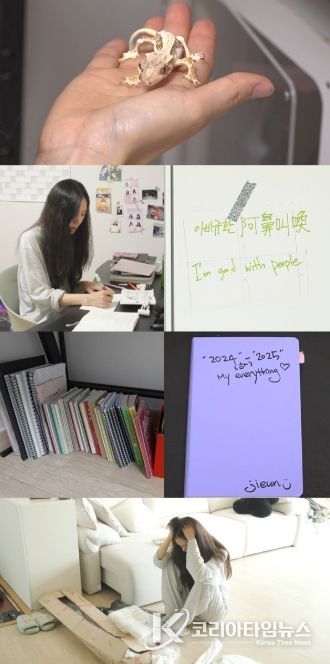 아비규환 阿鼻叫喚
I'm good with people.
"2024" "2025"
My everything♡
jieun
코리아타임뉴스
Korea Time News